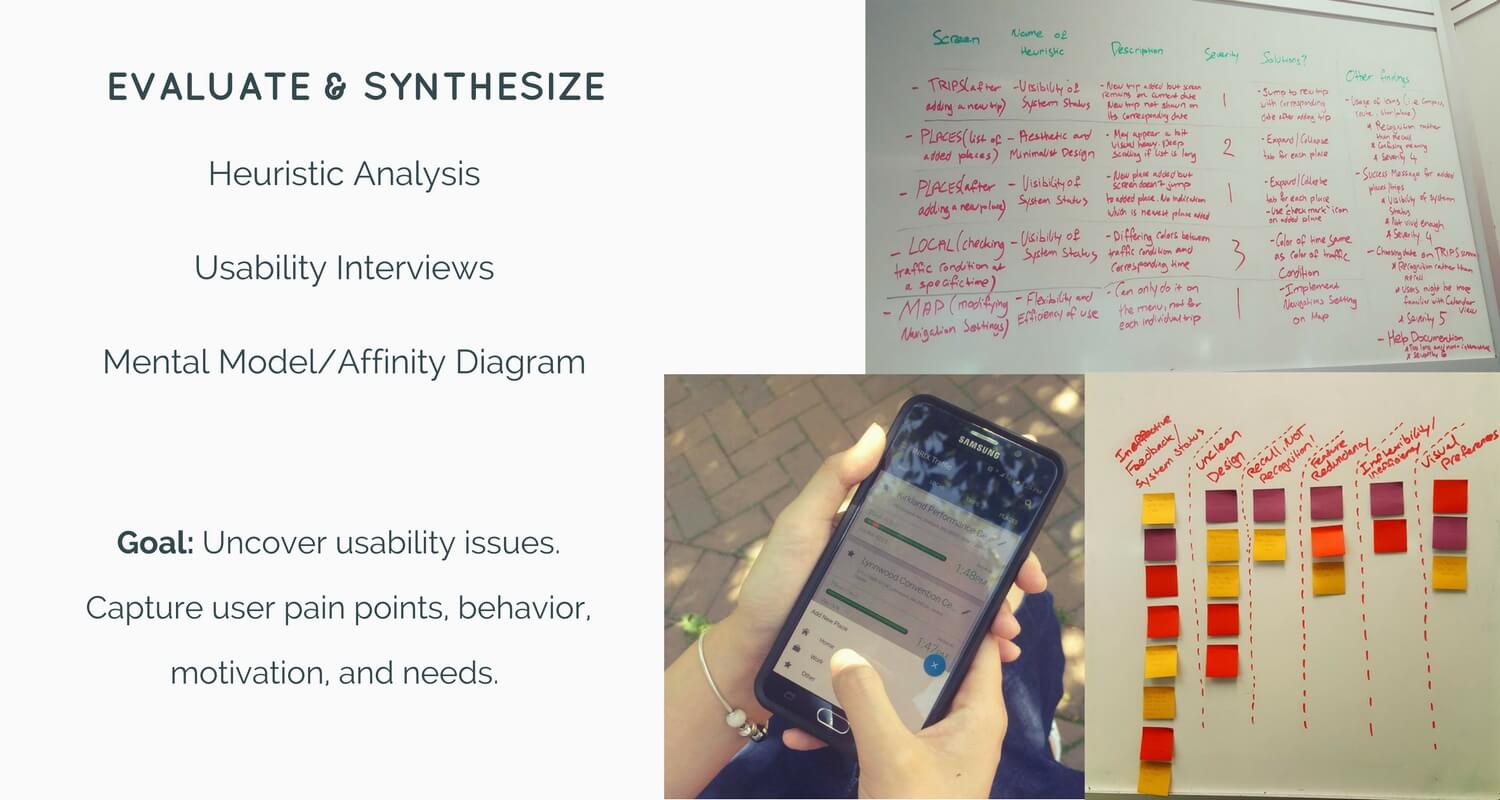 EVALUATE & SYNTHESIZE
Heuristic Analysis
Usability Interviews
Mental Model/Affinity Diagram
Goal: Uncover usability issues.
Capture user pain points, behavior,
motivation, and needs.
Screen
Name of
Heuristic
Description
Severity
Solutions?
Other findings
- TRIPS(after
adding a new trip)
- Visibility of
System Status
- New trip added but screen
remains on current date
New trip not shown on
its corresponding date
1
- Jump to new trip
with corresponding
date after adding trip
- PLACES(list of
added places)
- Aesthetic and
Minimalist Design
- May appear a bit
visual heavy. Deep
scrolling if list is long
2
- Expand/Collapse
tab for each place
- PLACES(after
adding a new place)
- Visibility of
System Status
- New place added but
screen doesn't jump
to added place. No indication
which is newest place added
1
- Expand/Collapse
tab for each place
- Use "check mark" icon
on added place
- LOCAL(checking
traffic condition at
a specific time)
- Visibility of
System Status
- Differing colors between
traffic condition and
corresponding time
3
- Color of time same
as color of traffic
Condition
- MAP (modifying
Navigation Settings)
- Flexibility and
Efficiency of use
- Can only do it on
the menu, not for
each individual trip
1
- Implement
Navigations Setting
on Map
- Usage of icons (i.e compass,
route, star/place)
* Recognition rather
than Recall
* Confusing meaning
* Severity 4
- Success Message for added
places/trips
* Visibility of system
Status
* Not vivid enough
* Severity 4
- Choosing date on TRIPS screen
* Recognition rather than
recall
* Users might be more
familiar with Calendar
View
* Severity 5
- Help Documentation
SAMSUNG
INRIX Traffic
PLACES
Kirkland Performance Ce...
1:48PM
Lynnwood Convention Ce...
1:47PM
Add New Place
Home
Work
Other
Ineffective
Feedback/
System Status
Unclean
Design
Recall, NOT
Recognition!
Feature
Redundancy
Inflexibility/
Inefficiency
Visual
Preferences